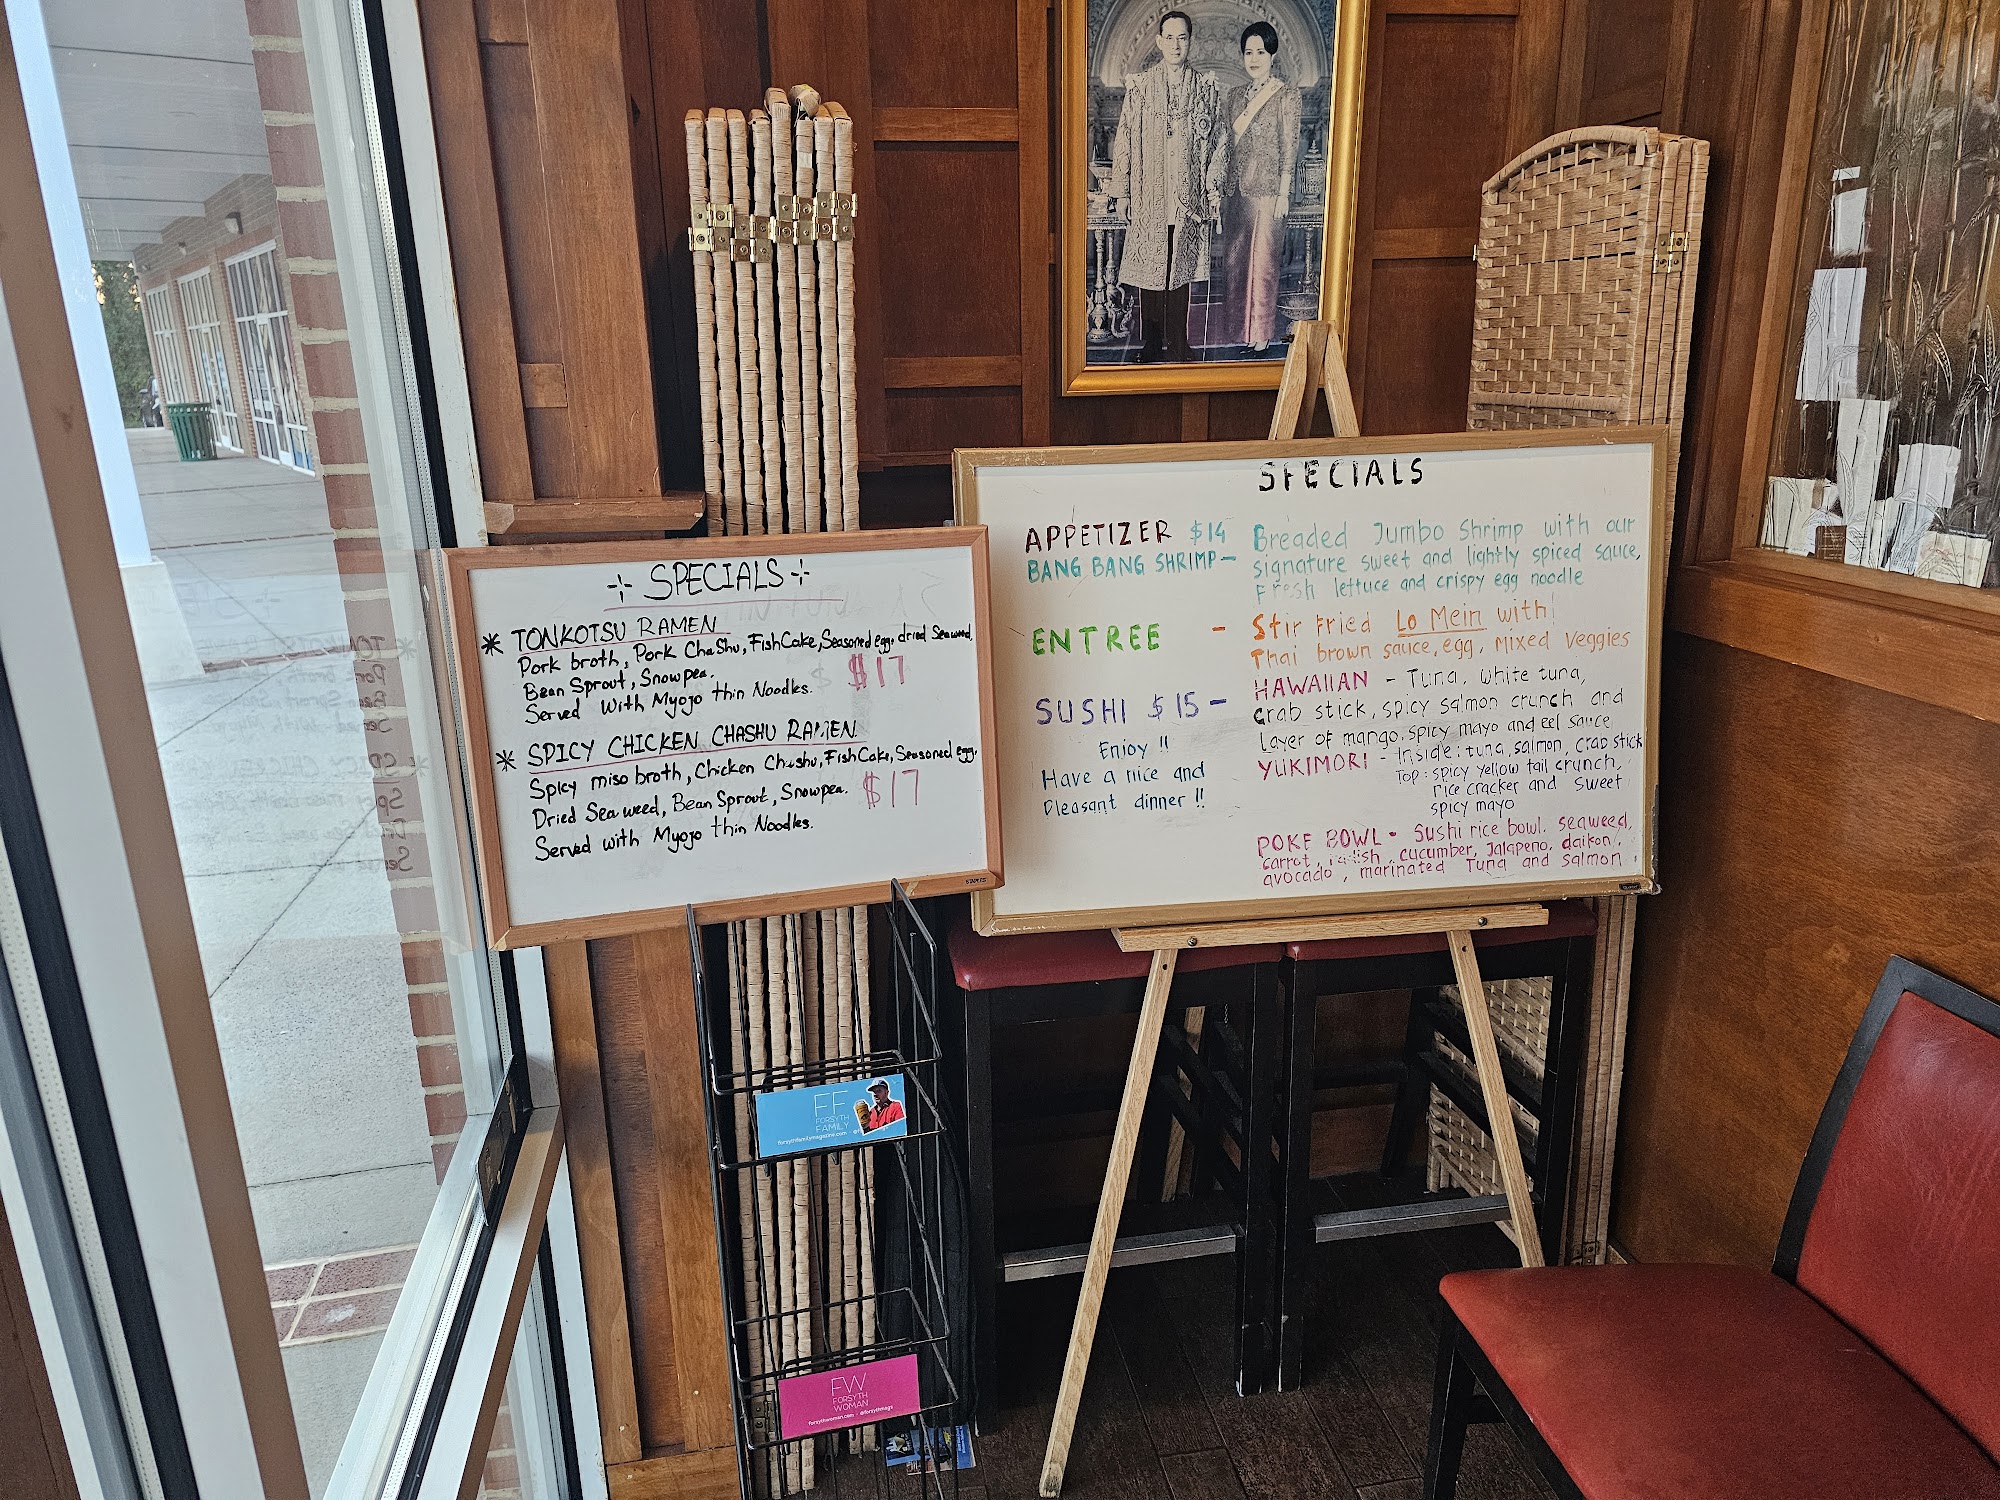 SPECIALS
* TONKOTSU RAMEN
Pork broth, Pork ChaShu, FishCake, Seasoned egg, dried Seaweed,
Bean Sprout, Snowpea.
Served With Myojo thin Noodles.
$17
* SPICY CHICKEN CHASHU RAMEN
Spicy miso broth, Chicken Chashu, FishCake, Seasoned egg,
Dried Seaweed, Bean Sprout, Snowpea.
$17
Served with Myojo thin Noodles.
STAPLES
SPECIALS
APPETIZER $14
BANG BANG SHRIMP -
Breaded Jumbo Shrimp with our
signature sweet and lightly spiced sauce,
Fresh lettuce and crispy egg noodle
ENTREE -
Stir Fried Lo Mein with
Thai brown sauce, egg, mixed Veggies
SUSHI $15 -
HAWAIIAN - Tuna, White tuna,
Crab stick, spicy salmon crunch and
Layer of mango, spicy mayo and eel sauce
YUKIMORI - Inside: tuna, salmon, crab stick
Top: spicy yellow tail crunch,
rice cracker and sweet
spicy mayo
POKE BOWL - Sushi rice bowl, seaweed,
carrot, radish, cucumber, Jalapeno, daikon,
avocado, marinated Tuna and salmon
Enjoy !!
Have a nice and
Pleasant dinner !!
FF
FORSYTH
FAMILY
forsythfamilymagazine.com
FW
FORSYTH
WOMAN
forsythwoman.com @forsythmags